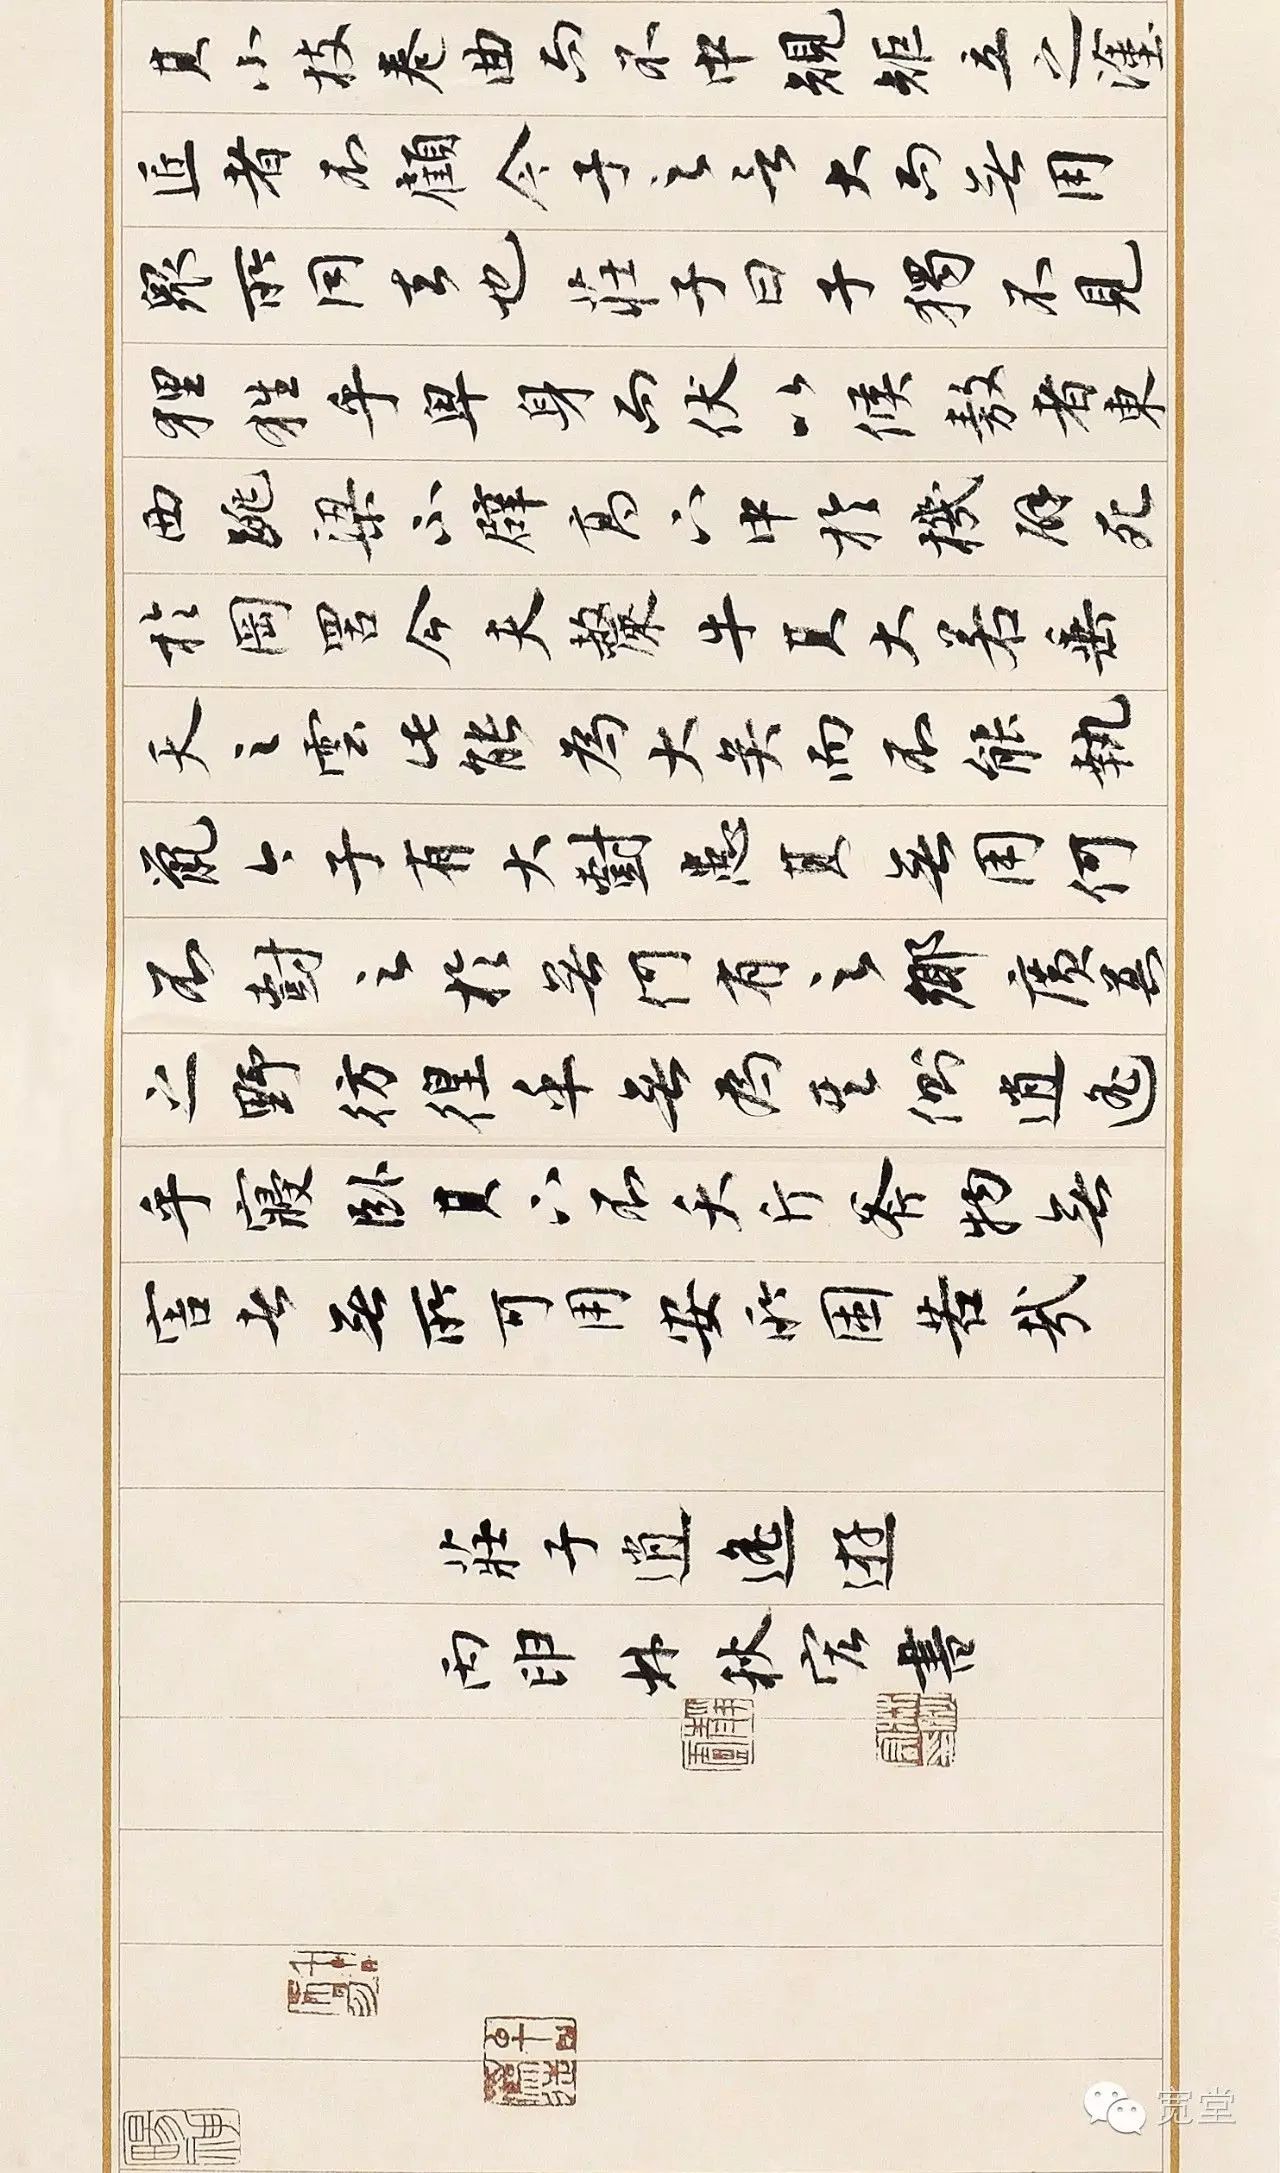 其小枝卷曲而不中規矩立之塗
匠者不顧今子之言大而無用
衆所同去也莊子曰子獨不見
狸狌乎卑身而伏以候敖者東
西跳梁不辟高下中於機辟死
於罔罟今夫斄牛其大若垂
天之雲此能為大矣而不能執
鼠今子有大樹患其無用何
不樹之於無何有之鄉廣莫
之野彷徨乎無為其側逍遙
乎寢卧其下不夭斤斧物無
害者無所可用安所困苦哉
莊子逍遙遊
丙申林秋宏書
宽堂